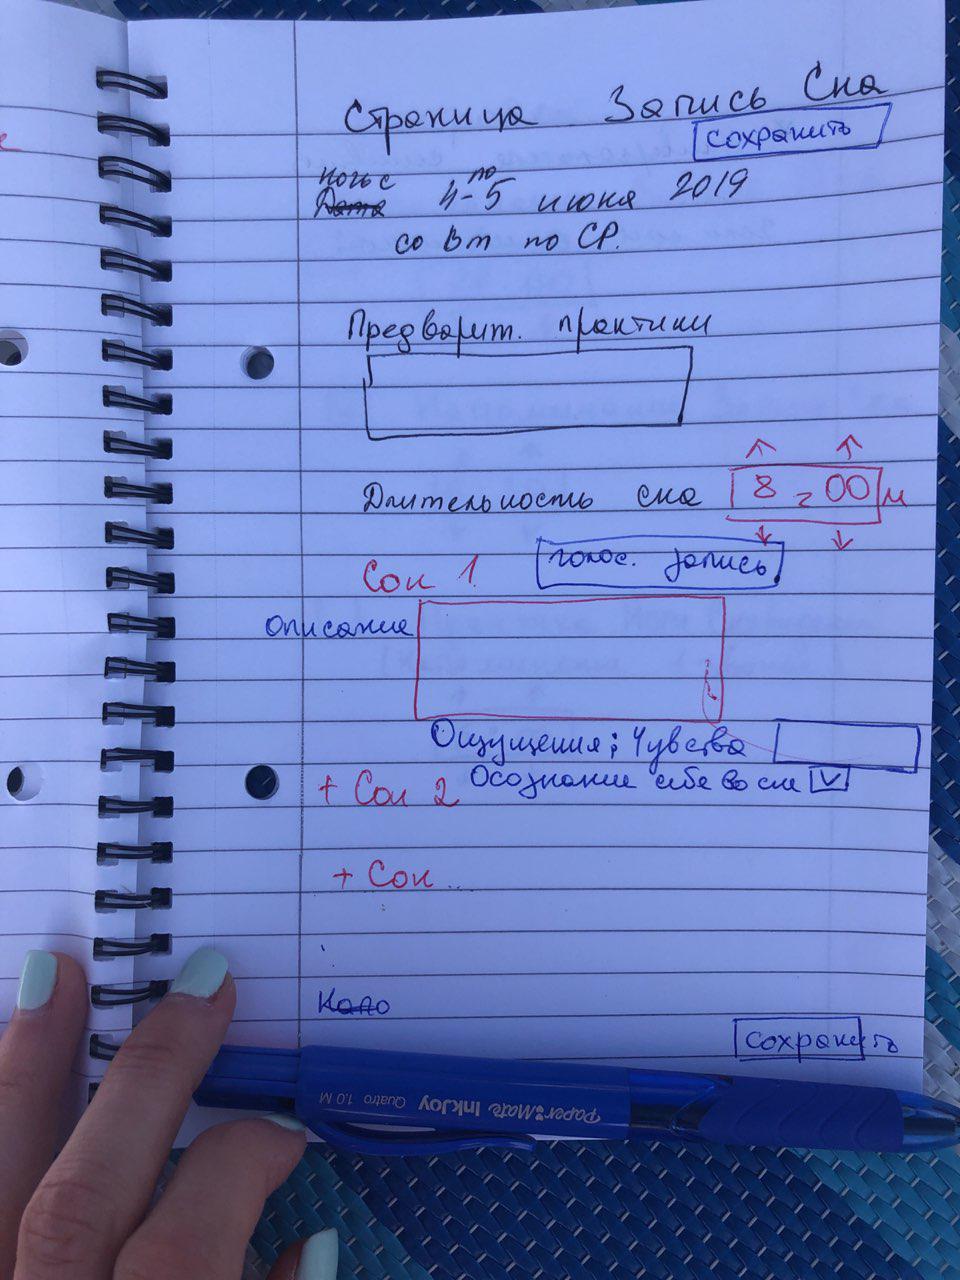 Страница Запись Сна
сохранить
ночь с по
Дата 4-5 июня 2019
со Вт по СР.
Предварит. практики
Длительность сна 8 ч 00 м
Сон 1 голос. запись
Описание
Ощущения; Чувства
Осознание себя во сне
+ Сон 2
+ Сон ...
сохранить
Paper Mate InkJoy Quatro 1.0 M